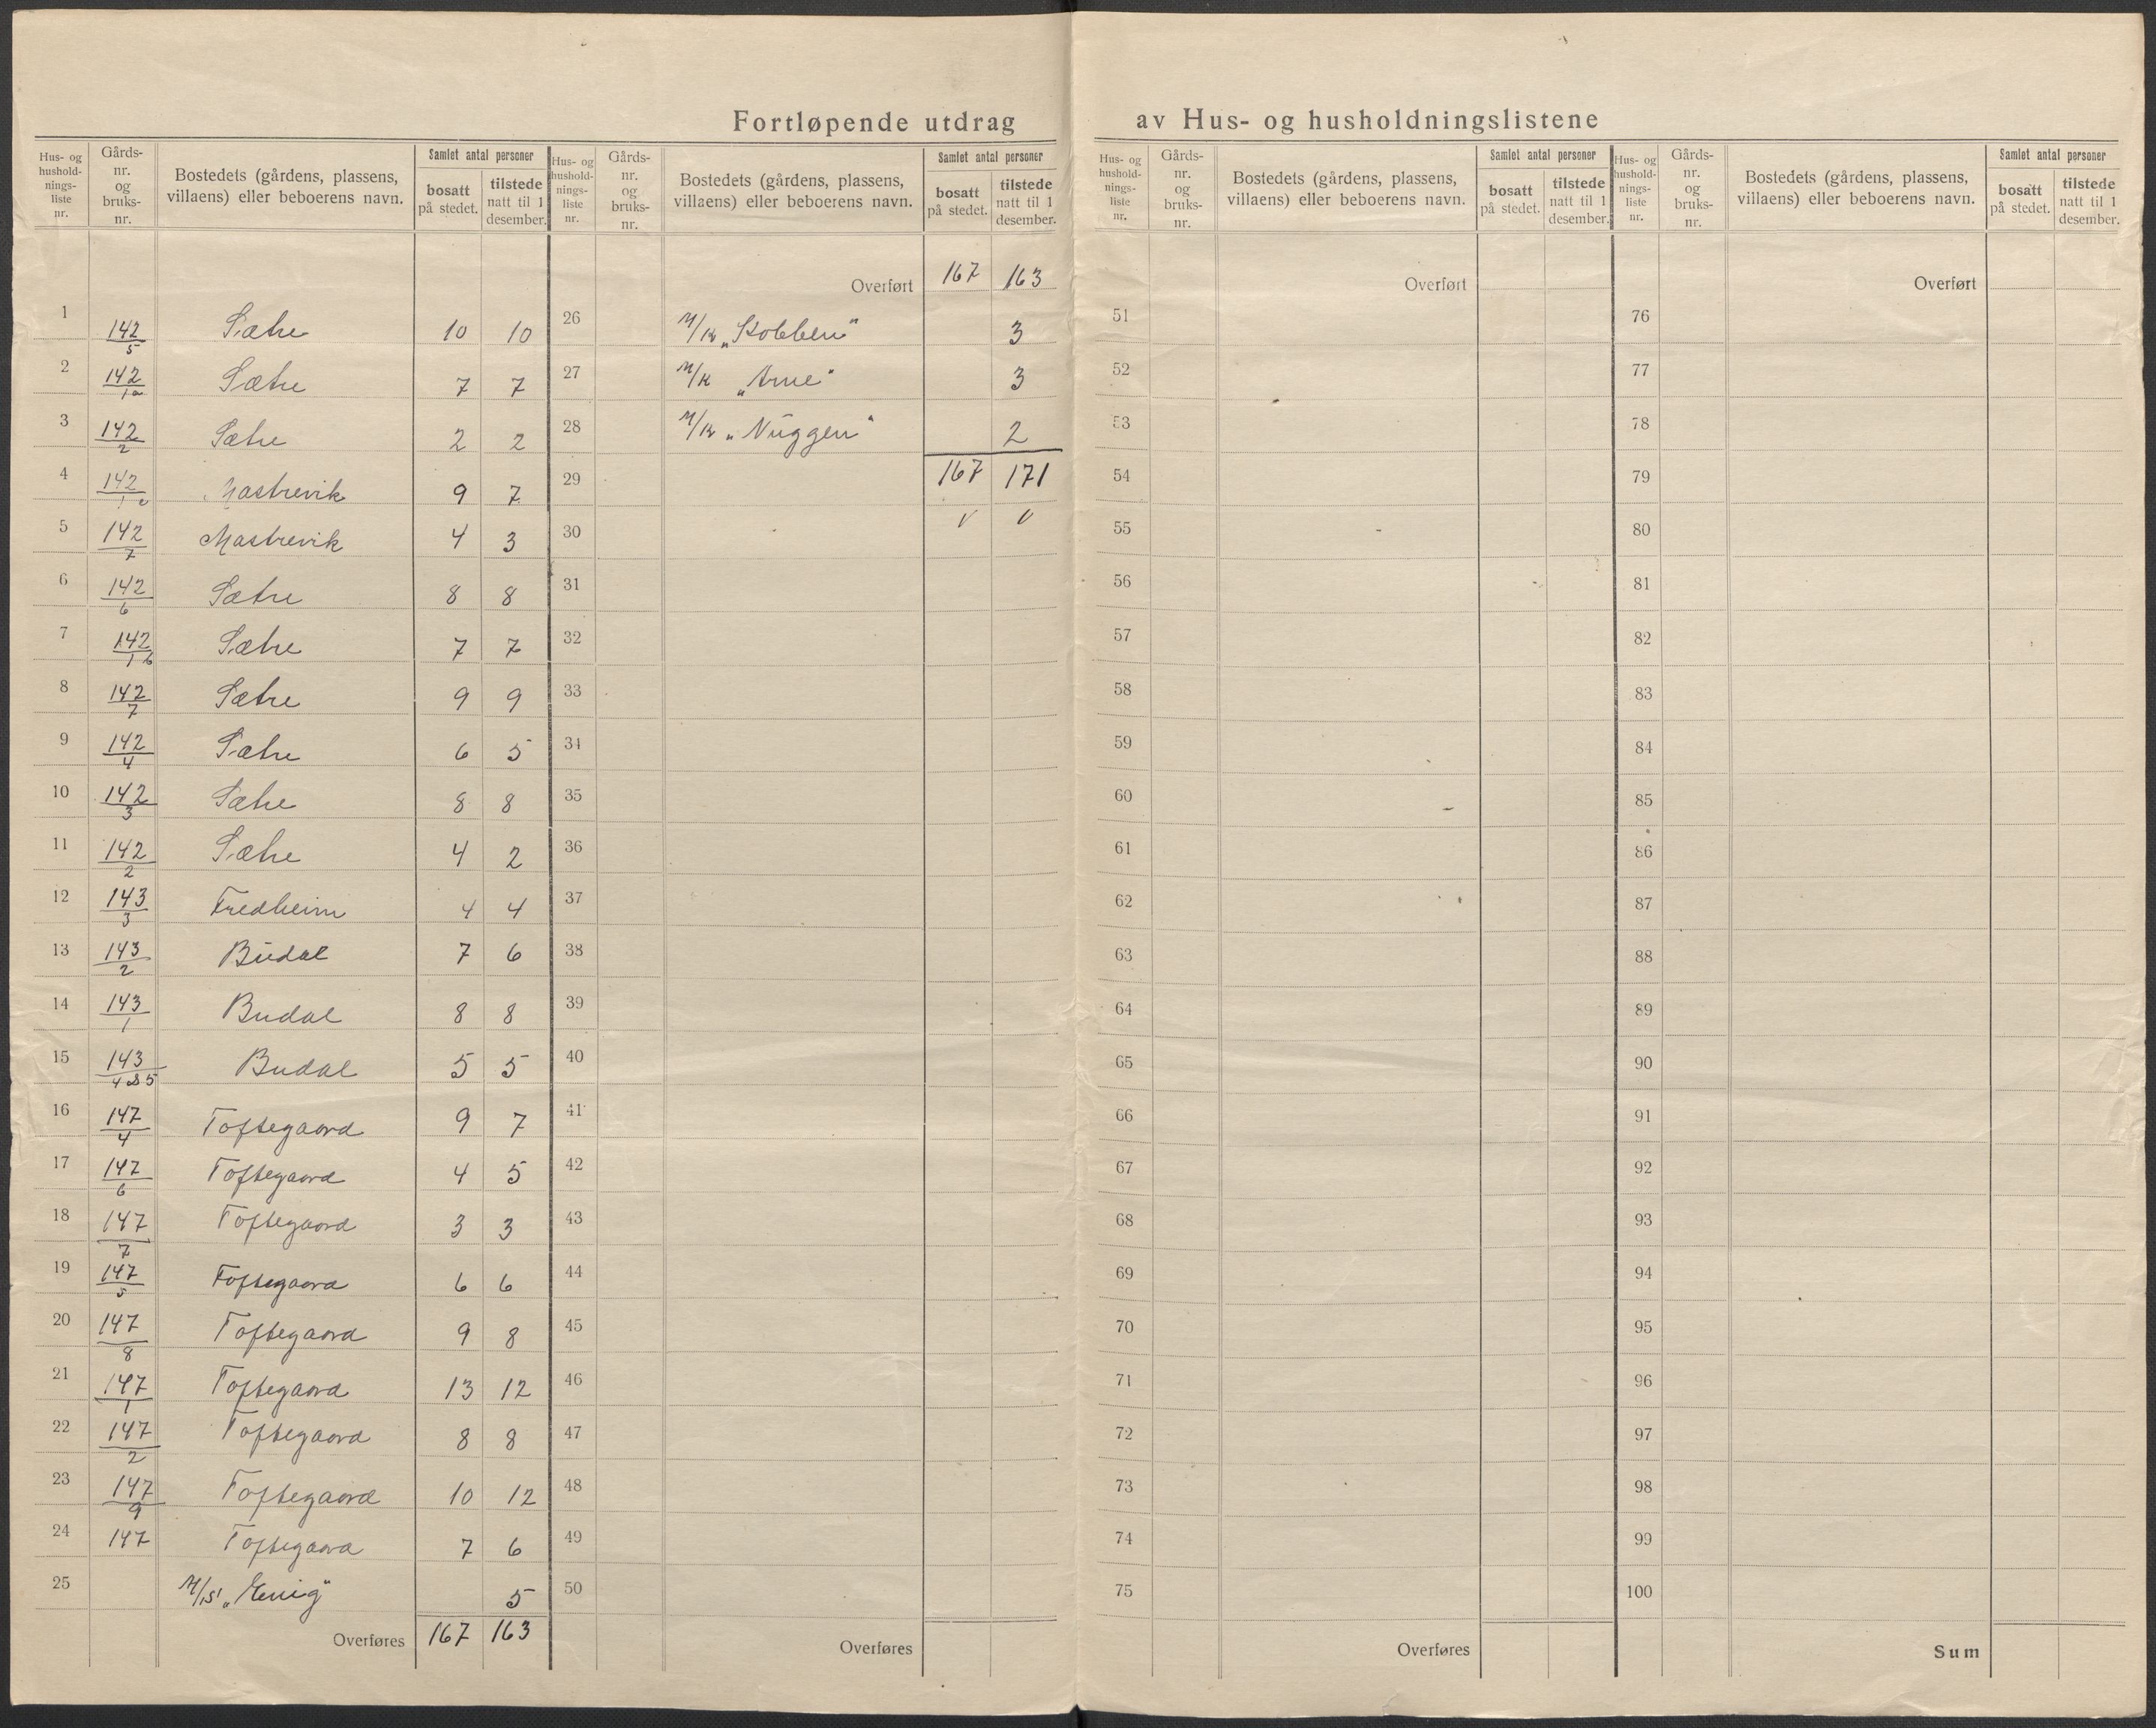 Fortløpende utdrag av Hus- og husholdningslistene
Hus- og hushold-nings-liste nr. Gårds-nr. og bruks-nr. Bostedets (gårdens, plassens, villaens) eller beboerens navn. Samlet antal personer bosatt på stedet. tilstede natt til 1 desember.
1 142/5 Sætre 10 10
2 142/1a Sætre 7 7
3 142/2 Sætre 2 2
4 142/1c Mastrevik 9 7
5 142/7 Mastrevik 4 3
6 142/6 Sætre 8 8
7 142/1b Sætre 7 7
8 142/7 Sætre 9 9
9 142/4 Sætre 6 5
10 142/3 Sætre 8 8
11 142/2 Sætre 4 2
12 143/3 Fredheim 4 4
13 143/2 Budal 7 6
14 143/1 Budal 8 8
15 143/4&5 Budal 5 5
16 147/4 Toftegaard 9 7
17 147/6 Toftegaard 4 5
18 147/7 Toftegaard 3 3
19 147/5 Toftegaard 6 6
20 147/8 Toftegaard 9 8
21 147/1 Toftegaard 13 12
22 147/2 Toftegaard 8 8
23 147/9 Toftegaard 10 12
24 147 Toftegaard 7 6
25 M/S „Enig" 5
Overføres 167 163
Hus- og hushold-nings-liste nr. Gårds-nr. og bruks-nr. Bostedets (gårdens, plassens, villaens) eller beboerens navn. Samlet antal personer bosatt på stedet. tilstede natt til 1 desember.
Overført 167 163
26 M/k „Kobben" 3
27 M/k „Arne" 3
28 M/k „Nuggen" 2
29 167 171
30
31
32
33
34
35
36
37
38
39
40
41
42
43
44
45
46
47
48
49
50
Overføres
Hus- og hushold-nings-liste nr. Gårds-nr. og bruks-nr. Bostedets (gårdens, plassens, villaens) eller beboerens navn. Samlet antal personer bosatt på stedet. tilstede natt til 1 desember.
Overført
51
52
53
54
55
56
57
58
59
60
61
62
63
64
65
66
67
68
69
70
71
72
73
74
75
Overføres
Hus- og hushold-nings-liste nr. Gårds-nr. og bruks-nr. Bostedets (gårdens, plassens, villaens) eller beboerens navn. Samlet antal personer bosatt på stedet. tilstede natt til 1 desember.
Overført
76
77
78
79
80
81
82
83
84
85
86
87
88
89
90
91
92
93
94
95
96
97
98
99
100
Sum